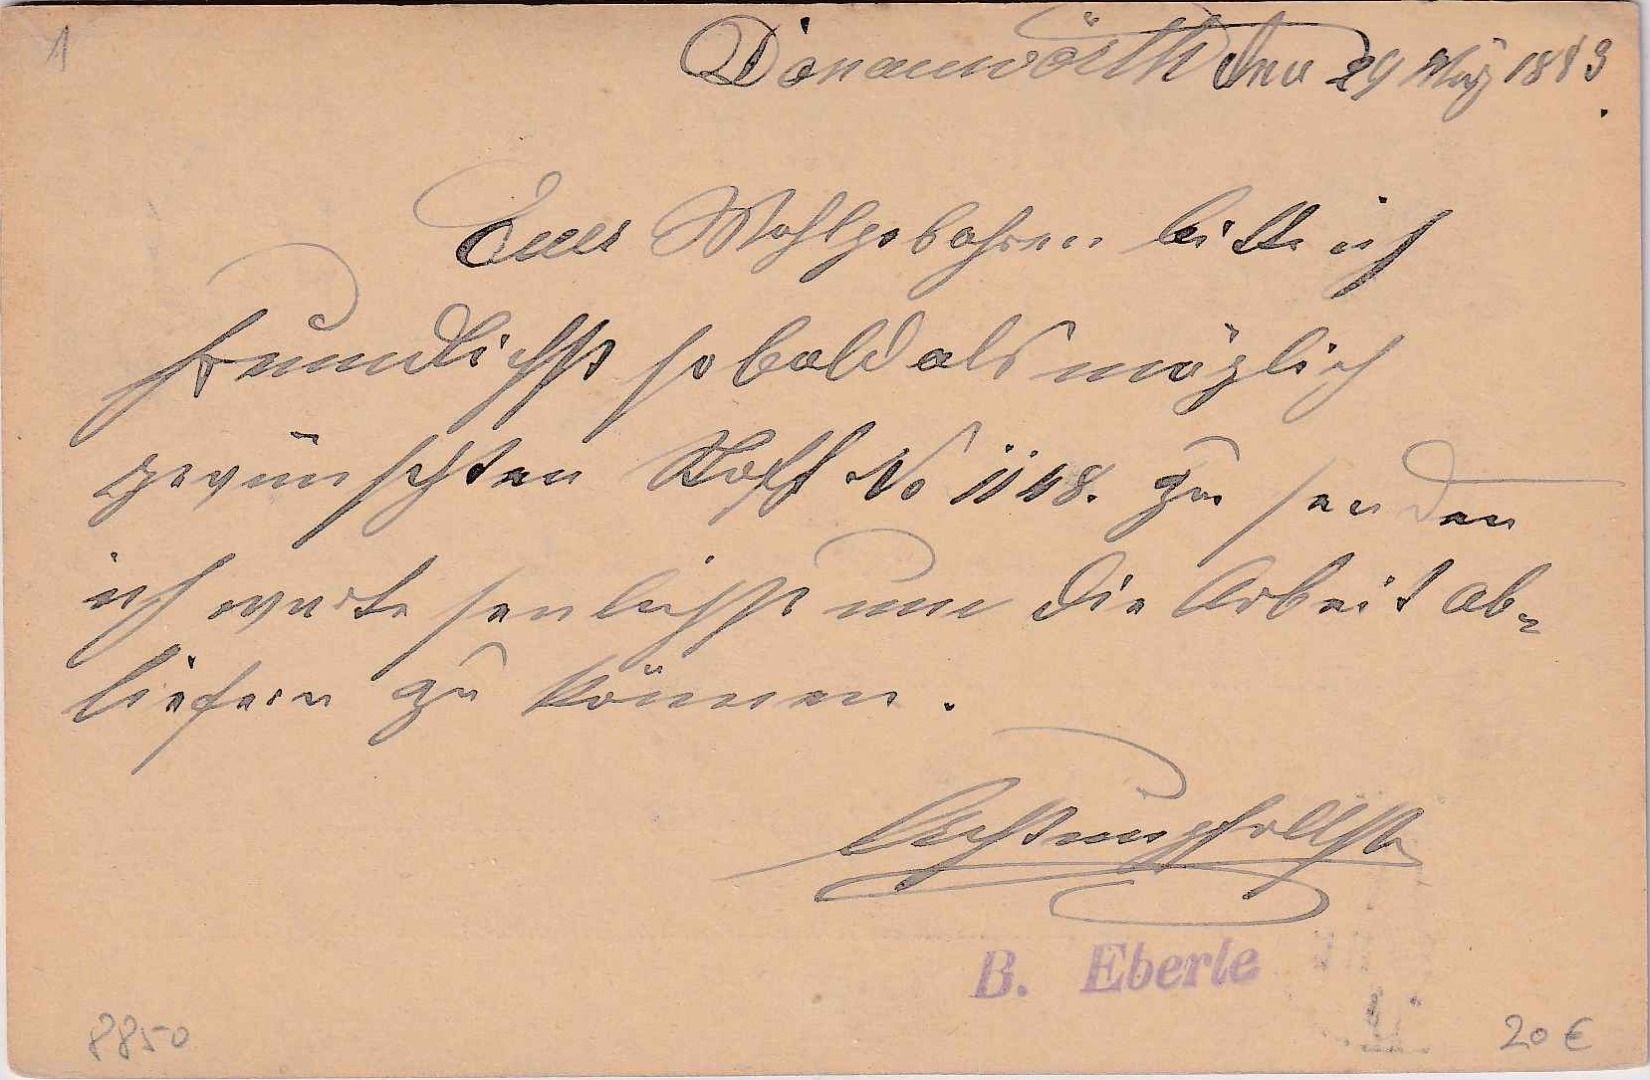 1
Donauwörth den 29 März 1883.
Euer Wohlgeboren bitte ich
freundlichst so bald als möglich
gewünschten Stoff No 1148. zu senden
ich warte senlichst um die Arbeit ab-
liefern zu können.
Achtungsvollst
B. Eberle
8850
20 €